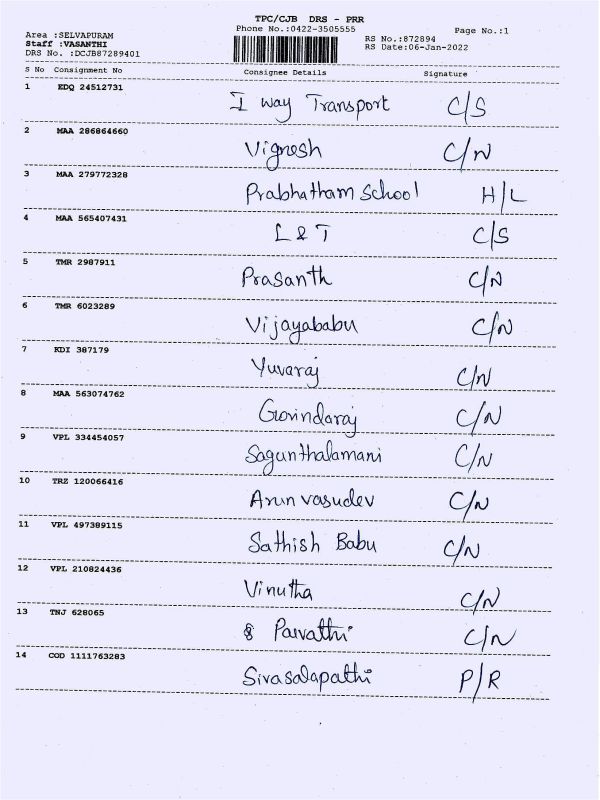 TPC/CJB DRS - PRR
Area :SELVAPURAM Phone No.:0422-3505555 Page No.:1
Staff :VASANTHI RS No.:872894
DRS No. :DCJB87289401 RS Date:06-Jan-2022
S No Consignment No Consignee Details Signature
1 EDQ 24512731 I way Transport C/S
2 MAA 286864660 Vignesh C/N
3 MAA 279772328 Prabhatham School H/L
4 MAA 565407431 L & T C/S
5 TMR 2987911 Prasanth C/N
6 TMR 6023289 Vijayababu C/N
7 KDI 387179 Yuvaraj C/N
8 MAA 563074762 Govindaraj C/N
9 VPL 334454057 Sagunthalamani C/N
10 TRZ 120066416 Arun vasudev C/N
11 VPL 497389115 Sathish Babu C/N
12 VPL 210824436 Vinutha C/N
13 TNJ 628065 Parvathi C/N
14 COD 1111763283 Sivasalapathi P/R